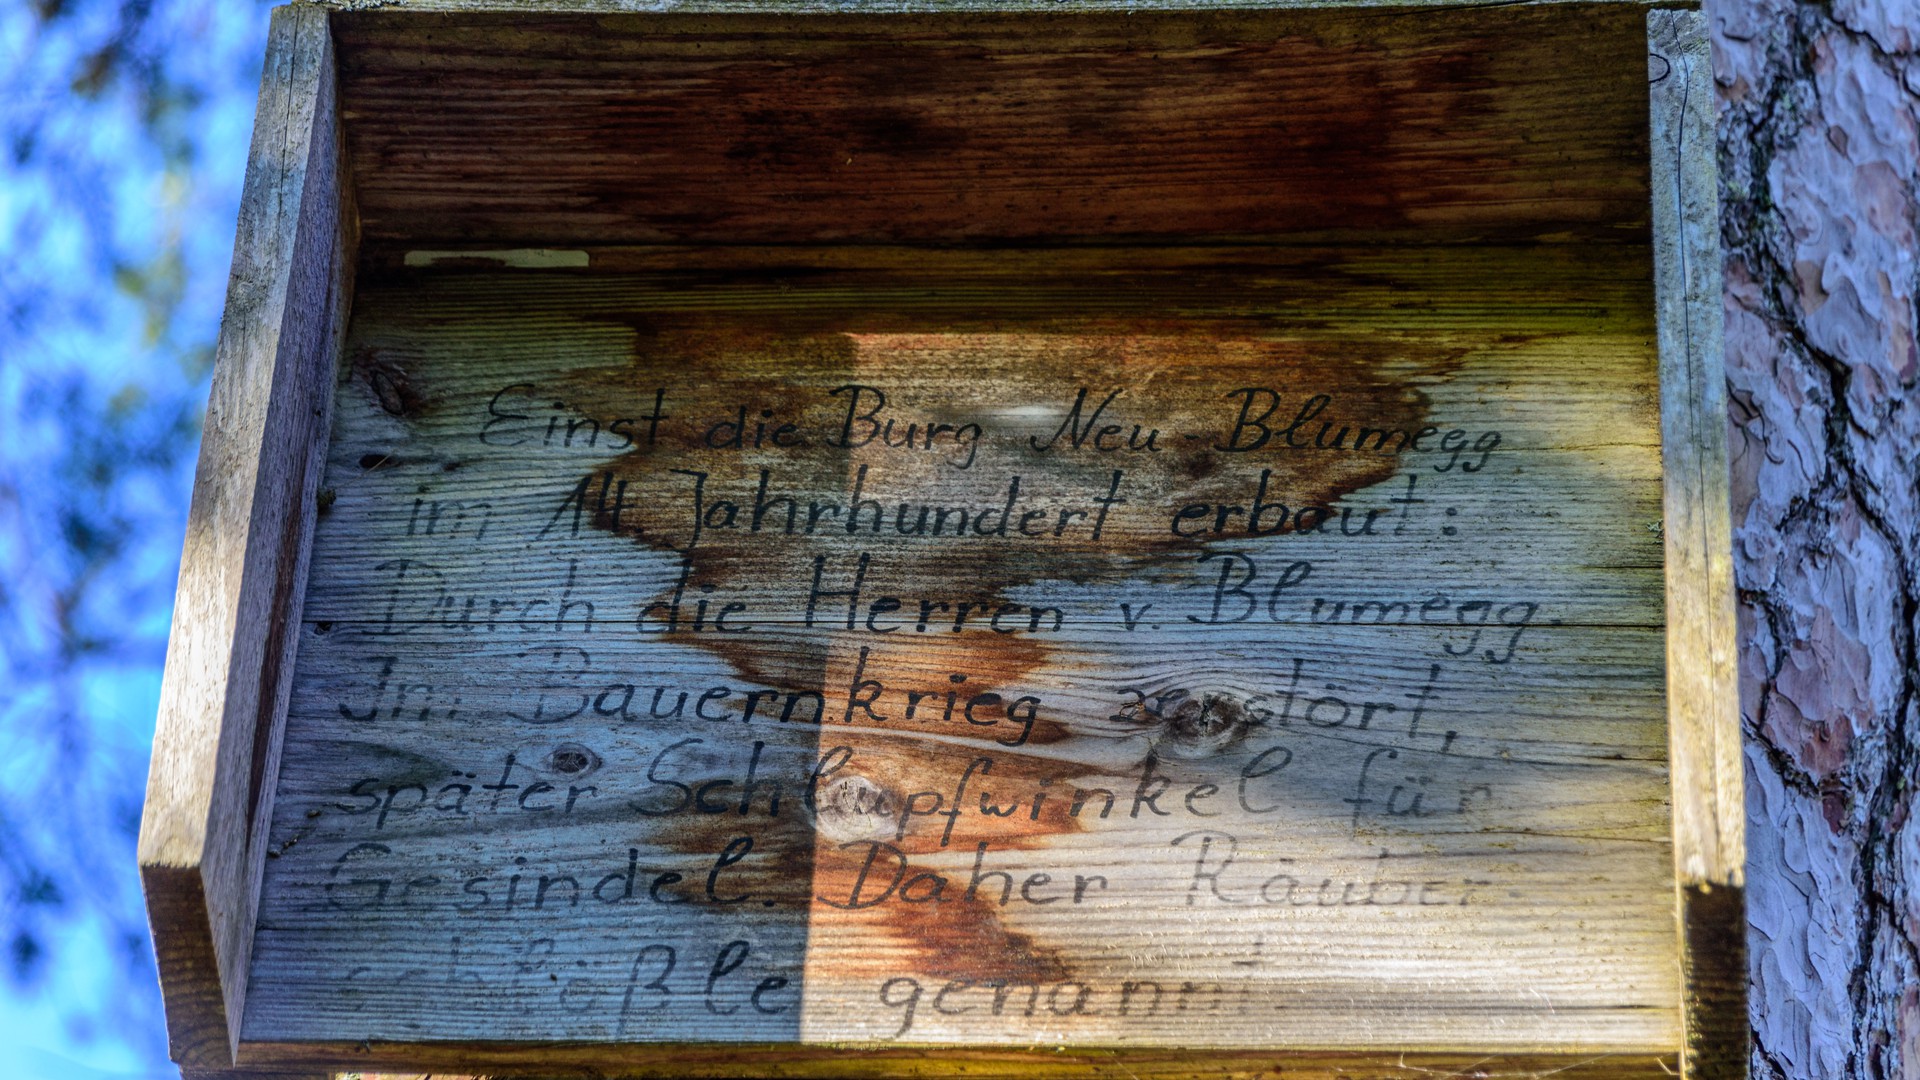 Einst die Burg Neu-Blumegg
im 14. Jahrhundert erbaut:
Durch die Herren v. Blumegg.
Im Bauernkrieg zerstört,
später Schlupfwinkel für
Gesindel. Daher Räuber-
schlößle genannt.